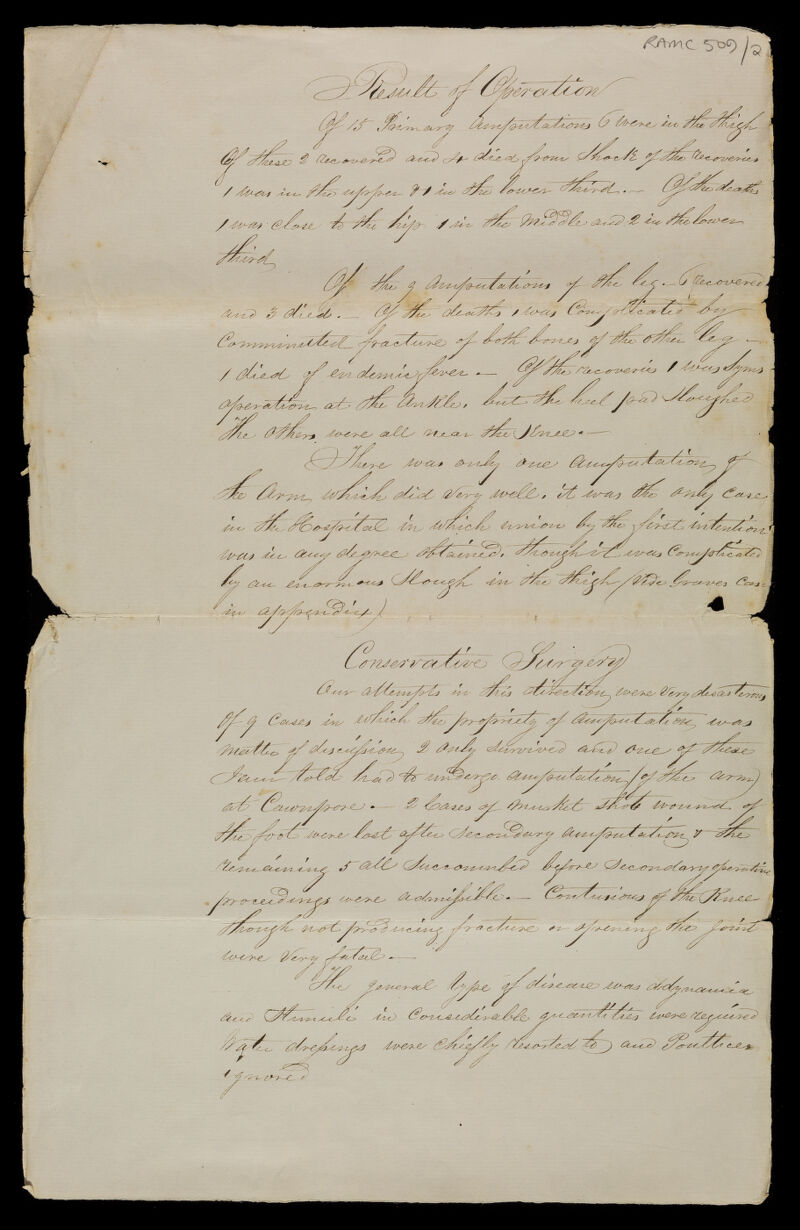 RAMC 509/2
Result of Operation
Of 15 Primary Amputations 6 were in the thigh
Of these 2 recovered and 4 died from Shock of the recoveries
1 was in the upper & 1 in the lower third. — Of the deaths
1 was close to the hip 1 in the middle and 2 in the lower
third
Of the 9 Amputations of the leg — 6 recovered
and 3 died. — Of the deaths 1 was Complicated by
Comminuted fracture of both bones of the other leg —
1 died of endemic fever. — Of the recoveries 1 was Syms
operation at the Ankle. but the heel pad Sloughed
The others were all near the Knee. —
There was only one Amputation of
the Arm which did very well. it was the only case
in the Hospital in which union by the first intention
was in any degree obtained. though it was Complicated
by an enormous Slough in the thigh (Vide Graves Case
in appendix)
Conservative Surgery
Our attempts in this direction were very disasterous
Of 9 Cases in which the propriety of amputation was
matter of discussion 2 only survived and one of these
I am told had to undergo amputation (of the arm)
at Cawnpore. — 2 Cases of Musket Shot wound of
the foot were lost after Secondary amputation & the
remaining 5 all Succumbed before Secondary operative
proceedings were admissible. — Contusions of the Knee
though not producing fracture or opening the Joint
were very fatal. —
The general type of disease was Adynamia
and Stimuli in Considerable quantities were required
Water dressings were chiefly resorted to and Poultices
ignored